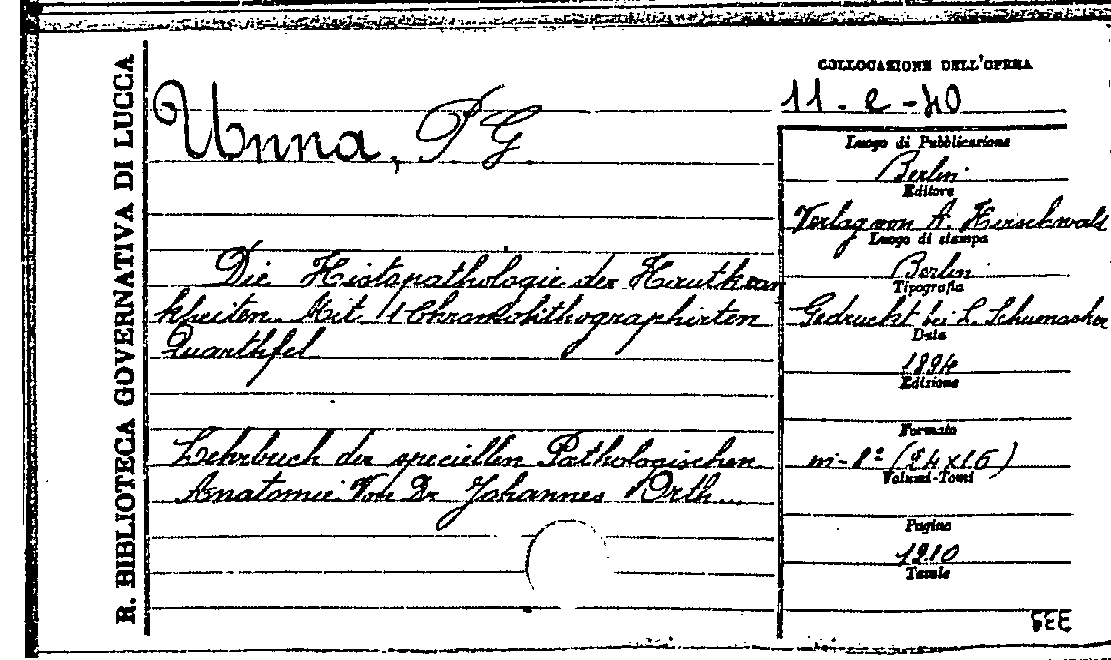 R. BIBLIOTECA GOVERNATIVA DI LUCCA
Unna, P G.
Die Histopathologie der Hautkran
kheiten. Mit 11 Chromolithographirten
Quarthfel
Lehrbuch der speciellen Pathologischen
Anatomie Von Dr Johannes Orth
COLLOCAZIONE DELL'OPERA
11 - e - 40
Luogo di Pubblicazione
Berlin
Editore
Verlag von A. Hirschwald
Luogo di stampa
Berlin
Tipografia
Gedruckt bei L. Schumacher
Data
1894
Edizione
Formato
in-8º (24x16)
Volumi-Tomi
Pagine
1210
Tavole